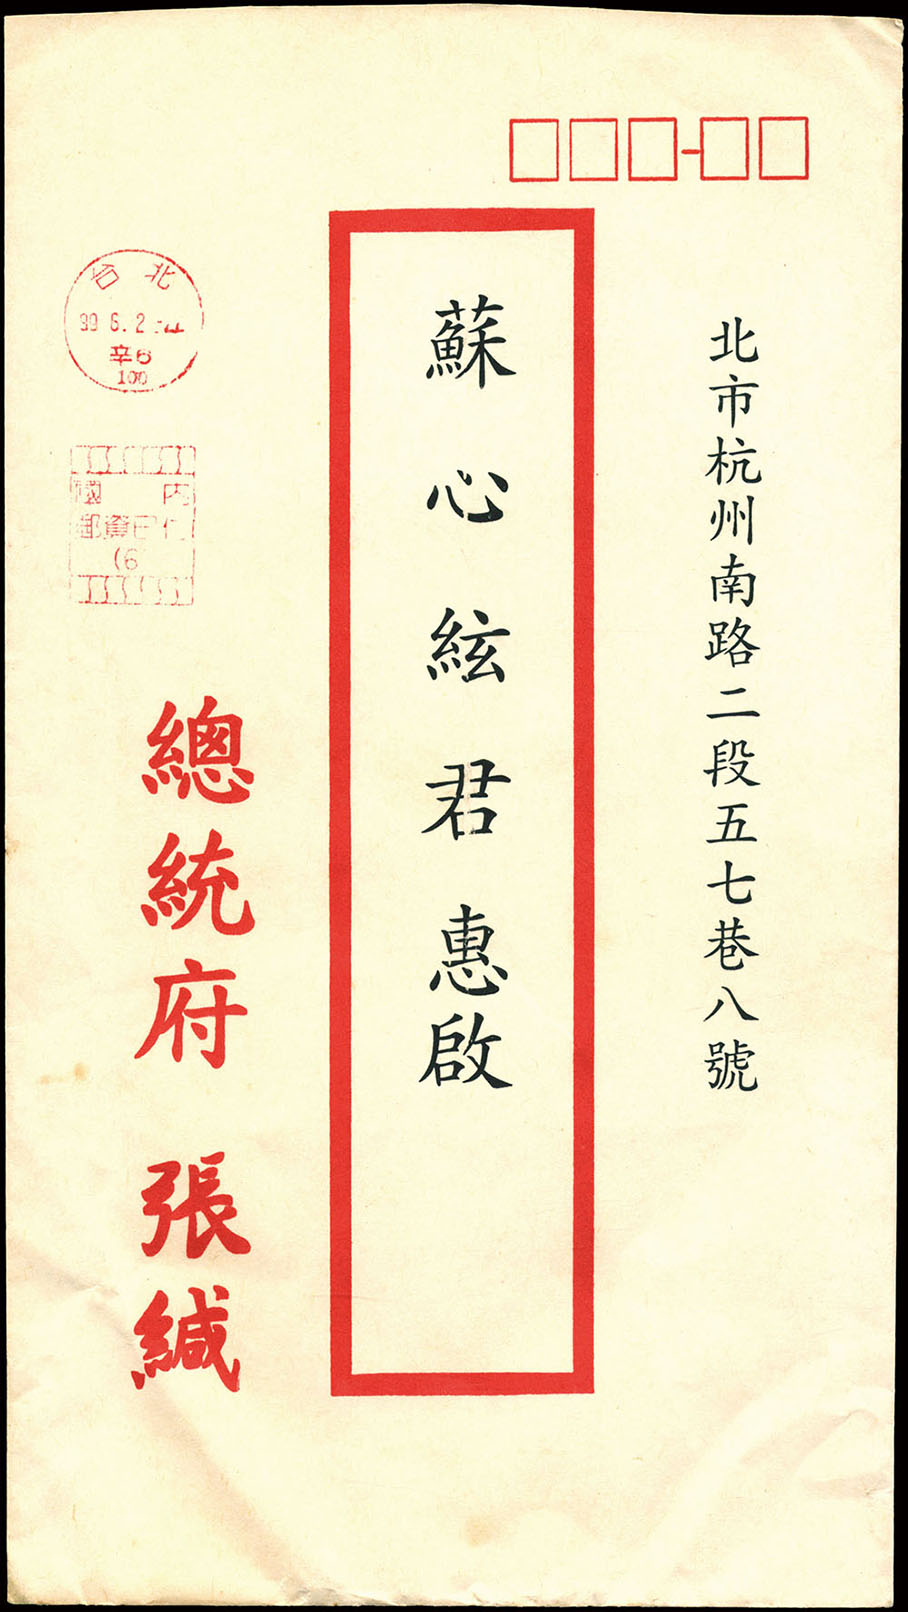 北市杭州南路二段五七巷八號
蘇心絃君惠啟
總統府 張緘
台北
99.6.2
辛6
100
國內
郵資已付